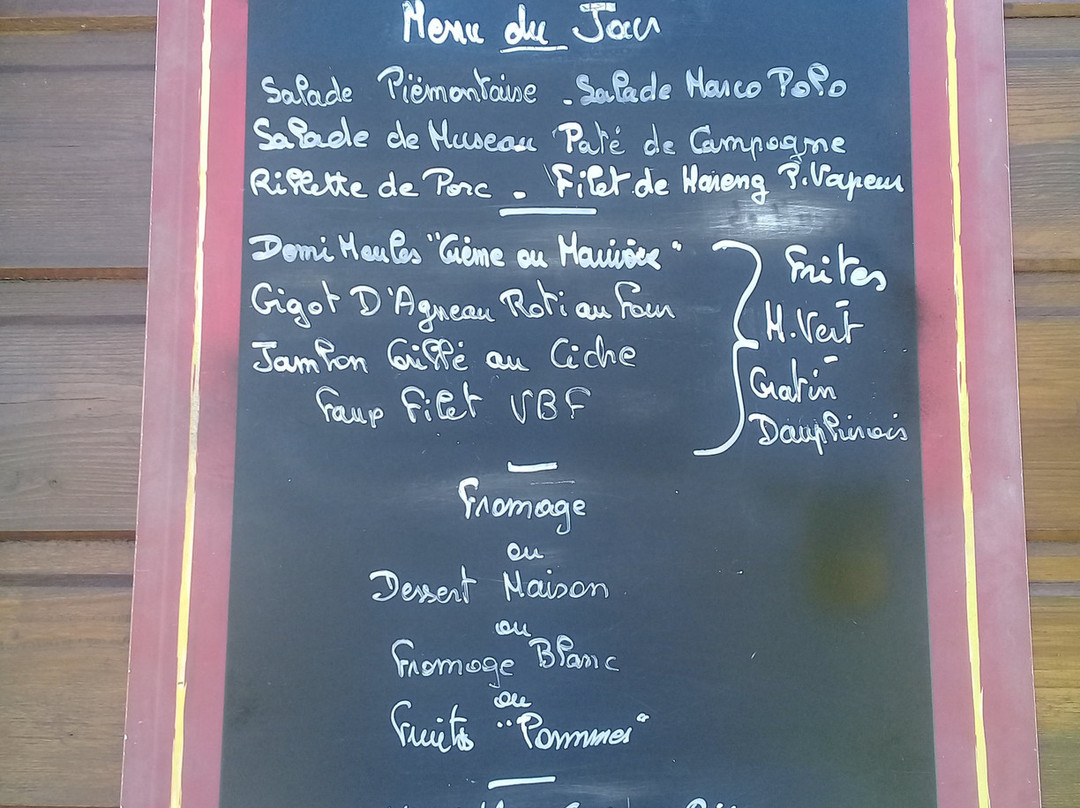 Menu du Jour
Salade Piémontaise - Salade Marco Polo
Salade de Museau Paté de Campagne
Rillette de Porc - Filet de Hareng P. Vapeur
Demi Moules "Crème ou Marinière"
Gigot D'Agneau Roti au Four
Jambon Grillé au Cidre
Faux Filet VBF
Frites
H. Vert
Gratin
Dauphinois
Fromage
ou
Dessert Maison
ou
Fromage Blanc
ou
Fruits "Pommes"